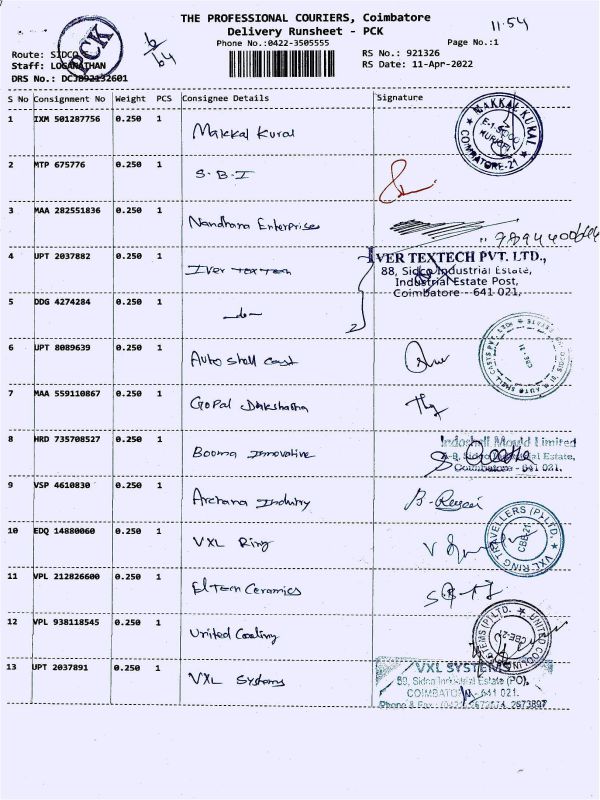 THE PROFESSIONAL COURIERS, Coimbatore
11:54
Delivery Runsheet - PCK
Phone No.:0422-3505555
Page No.:1
PCK
6/64
Route: SIDCO
RS No.: 921326
Staff: LOGANATHAN
RS Date: 11-Apr-2022
DRS No.: DCJB92132601
S No Consignment No Weight PCS Consignee Details Signature
1 IXM 501287756 0.250 1 Makkal Kural
MAKKAL KURAL
COIMBATORE-21
2 MTP 675776 0.250 1 S.B.I
3 MAA 282551836 0.250 1 Nandhana Enterprises
4 UPT 2037882 0.250 1 Iver textech
IVER TEXTECH PVT. LTD.,
88, Sidco Industrial Estate,
Industrial Estate Post,
Coimbatore - 641 021.
5 DDG 4274284 0.250 1 -do-
2
6 UPT 8089639 0.250 1 Auto shell cast
AUTO SHELL CASTS PVT. LTD
CBE-21
7 MAA 559110867 0.250 1 Gopal
8 HRD 735708527 0.250 1 Booma Innovative
Indoshell Mould Limited
A-9, Sidco Industrial Estate,
Coimbatore - 641 021.
9 VSP 4610830 0.250 1 Archana Industry
10 EDQ 14880060 0.250 1 VXL Ring
VXL RING TRAVELLERS (P) LTD.
CBE-21
11 VPL 212826600 0.250 1 El Tech Ceramics
12 VPL 938118545 0.250 1 United Cooling
UNITED COOLING SYSTEMS (P) LTD.
CBE-21
13 UPT 2037891 0.250 1 VXL Systems
VXL SYSTEMS
59, Sidco Industrial Estate (PO),
COIMBATORE - 641 021.
Phone & Fax : 2673897